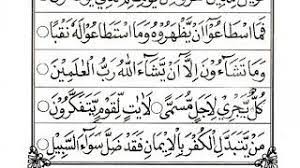 فَمَا اسْطَاعُوْۤا اَنْ يَّظْهَرُوْهُ وَمَا اسْتَطَاعُوْا لَهٗ نَقْبًا
وَمَا تَشَآءُوْنَ اِلَّاۤ اَنْ يَّشَآءَ اللّٰهُ رَبُّ الْعٰلَمِيْنَ
كُلٌّ يَّجْرِيْ لِاَجَلٍ مُّسَمًّى لَاٰيٰتٍ لِّقَوْمٍ يَّتَفَكَّرُوْنَ
مَنْ يَّتَبَدَّلِ الْكُفْرَ بِالْاِيْمَانِ فَقَدْ ضَلَّ سَوَآءَ السَّبِيْلِ